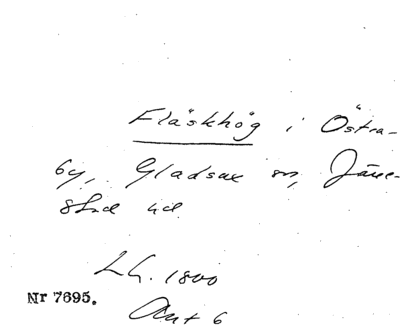 Fläskhög i Östra-
by, Gladsax sn, Järre-
stad hd
L.G. 1800
Nr 7695.
6